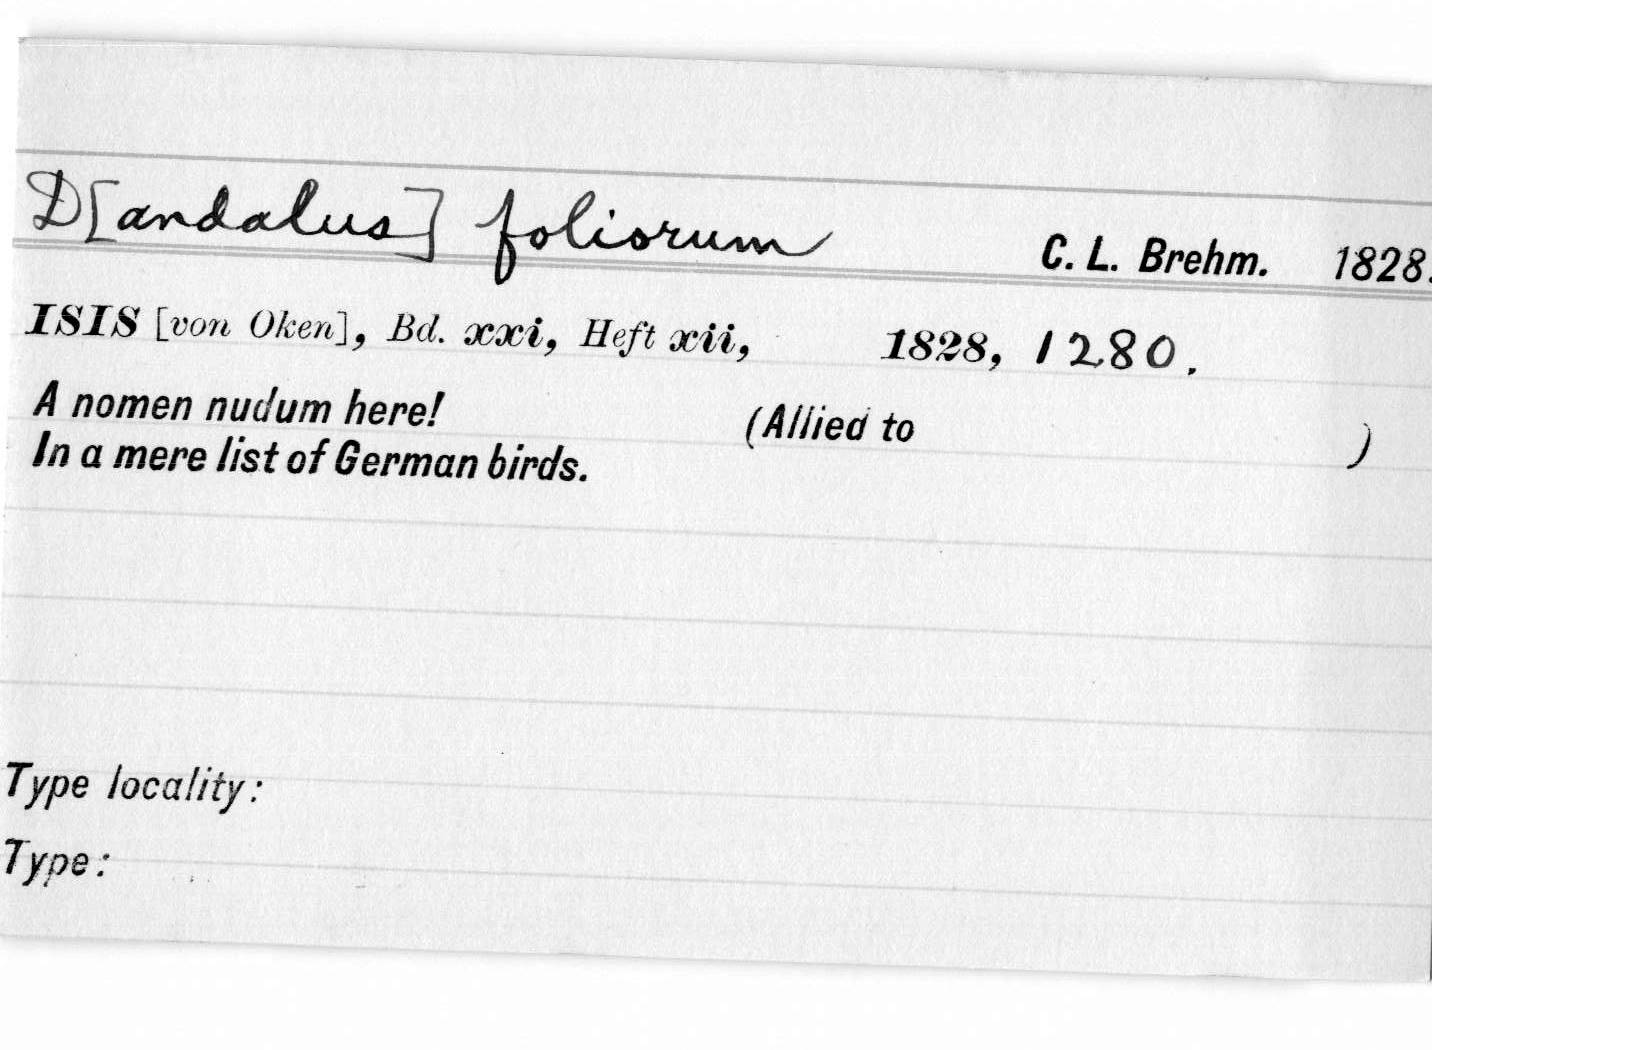 D[andalus] foliorum C. L. Brehm. 1828.
ISIS [von Oken], Bd. xxi, Heft xii, 1828, 1280.
A nomen nudum here! (Allied to )
In a mere list of German birds.
Type locality:
Type: